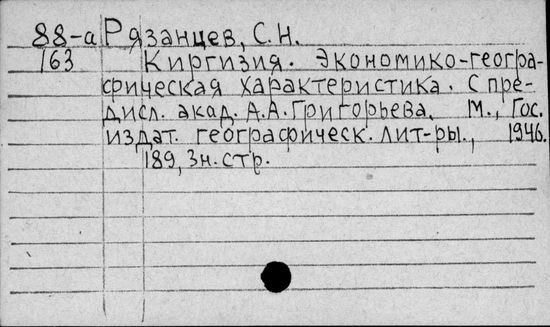 88-а Рязанцев, С.Н.
163 Киргизия. Экономико-геогра-
фическая характеристика. С пре-
дисл. акад. А.А.Григорьева. М., Гос.
издат. географическ. лит-ры., 1946.
189, 3н. стр.